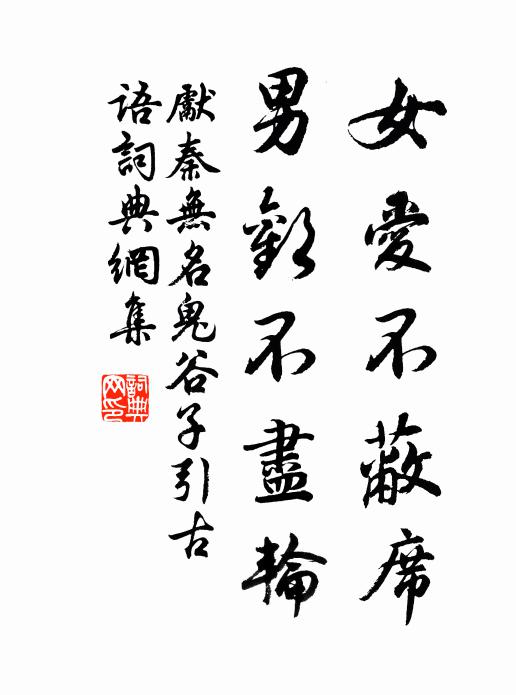 女愛不蔽席
男歡不盡輪
獻秦無名鬼谷子引古
語詞典網集
詞典
网印